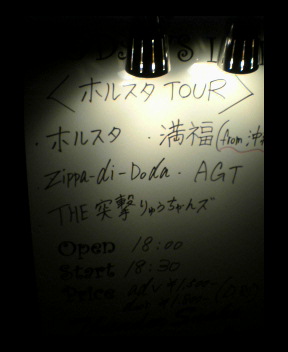 〈ホルスタ TOUR〉
・ホルスタ ・満福(from 沖
Zippa-di-Doda・AGT
THE 突撃りゅうちゃんズ
Open 18:00
Start 18:30
Price adv ¥1500-